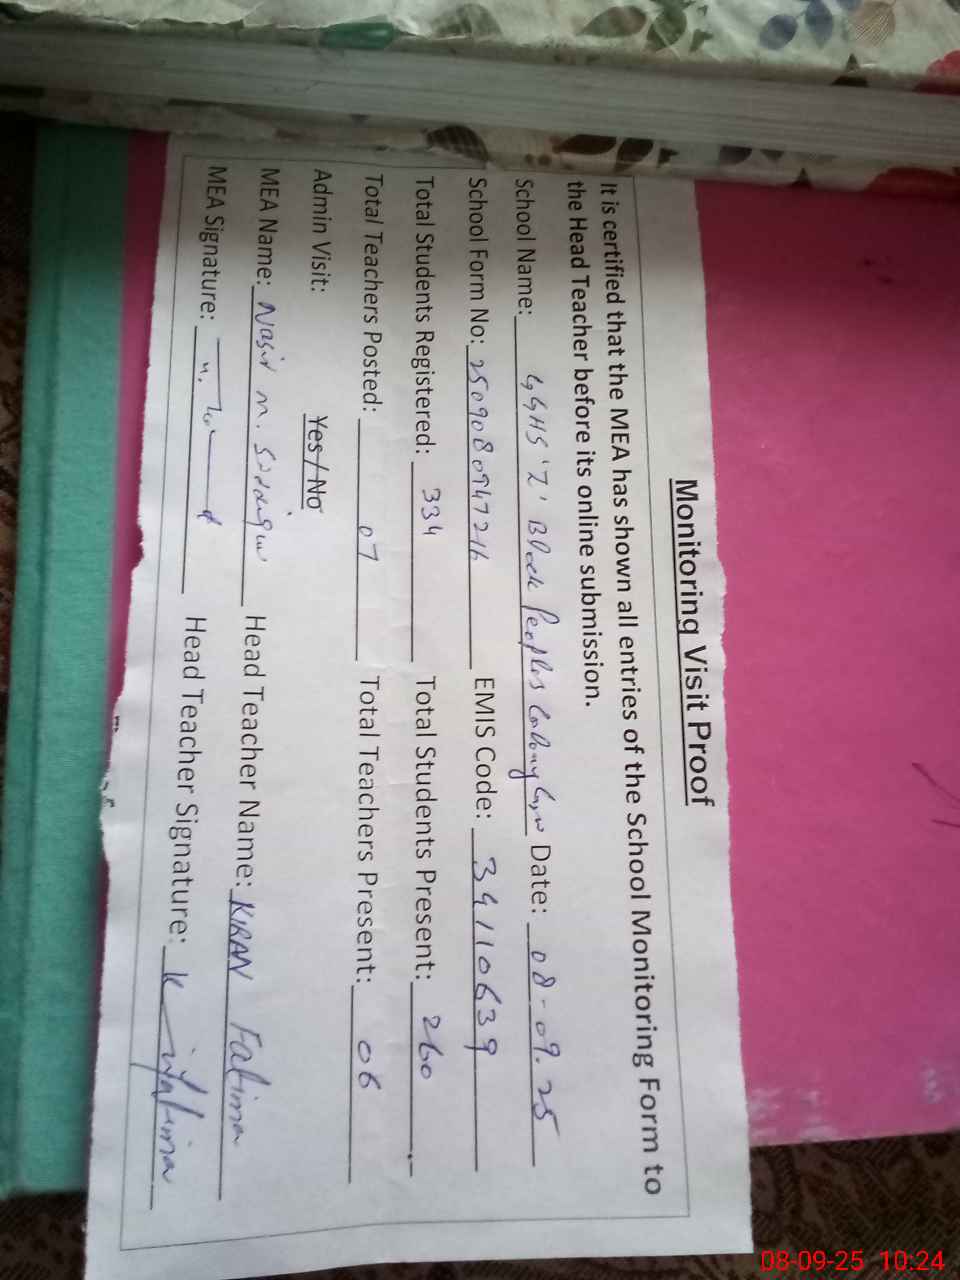 Monitoring Visit Proof
It is certified that the MEA has shown all entries of the School Monitoring Form to
the Head Teacher before its online submission.
School Name: GGHS 'Z' Block Peoples Colony Date: 08-09.25
School Form No: EMIS Code: 34110639
Total Students Registered: 334 Total Students Present: 260
Total Teachers Posted: 07 Total Teachers Present: 06
Admin Visit: Yes/No
MEA Name: Nasir M. Head Teacher Name: KIRAN Fatima
MEA Signature: Head Teacher Signature: K Fatima
08-09-25 10:24